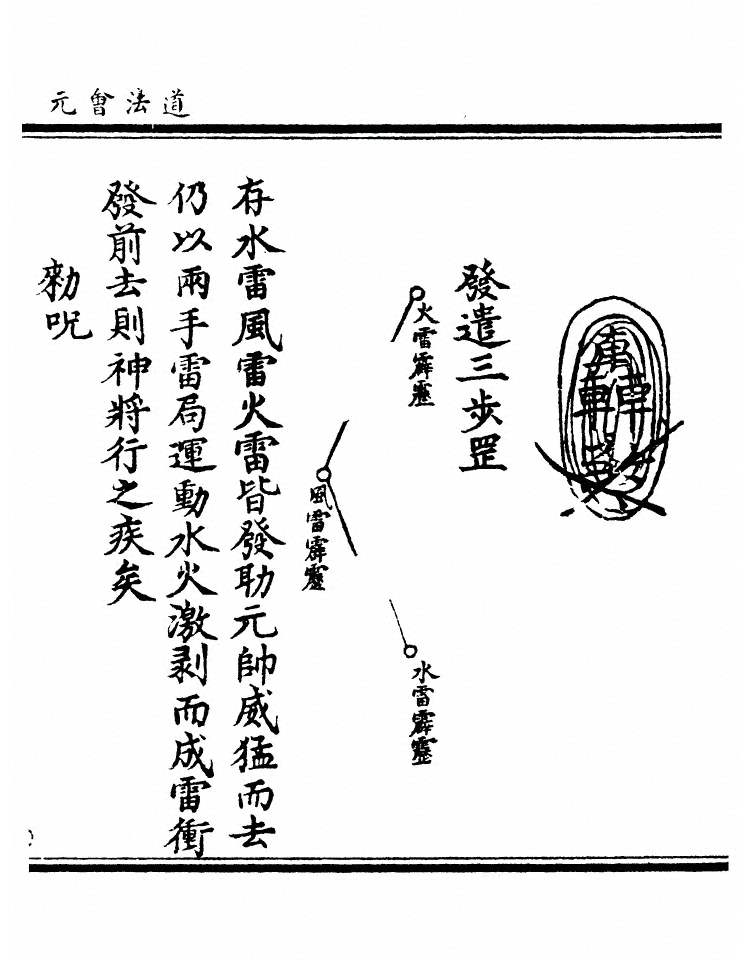 道法會元
發遣三步罡
火雷霹靂
風雷霹靂
水雷霹靂
存水雷風雷火雷皆發助元帥威猛而去
仍以兩手雷局運動水火激剥而成雷衝
發前去則神將行之疾矣
勑呪